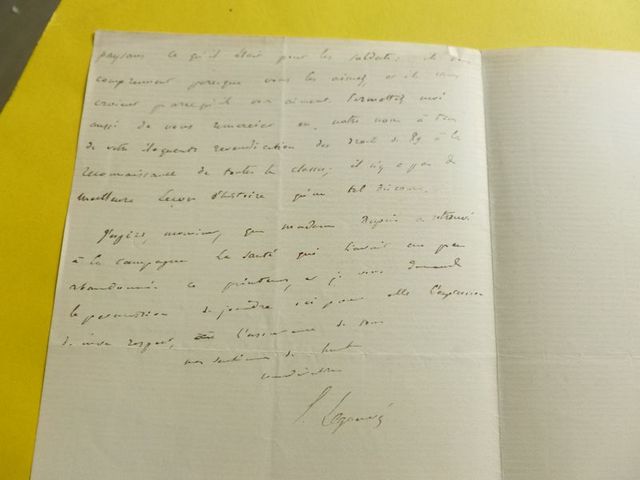 paysans ce qu'il était pour les soldats; ils vous
comprennent parceque vous les aimez, et ils vous
croient parcequ'ils vous aiment. Permettez moi
aussi de vous remercier en notre nom à tous
de votre éloquente revendication des droits de 89 à la
reconnaissance de toutes les classes; il n'y a pas de
meilleure leçon d'histoire qu'un tel discours.
J'espère, monsieur, que madame Dupin a retrouvé
à la campagne la santé qui l'avait un peu
abandonnée ce printemps, et je vous demande
la permission de joindre ici pour elle l'expression
de mon respect, à l'assurance de tous
mes sentiments de haute
considération
E. Legouvé